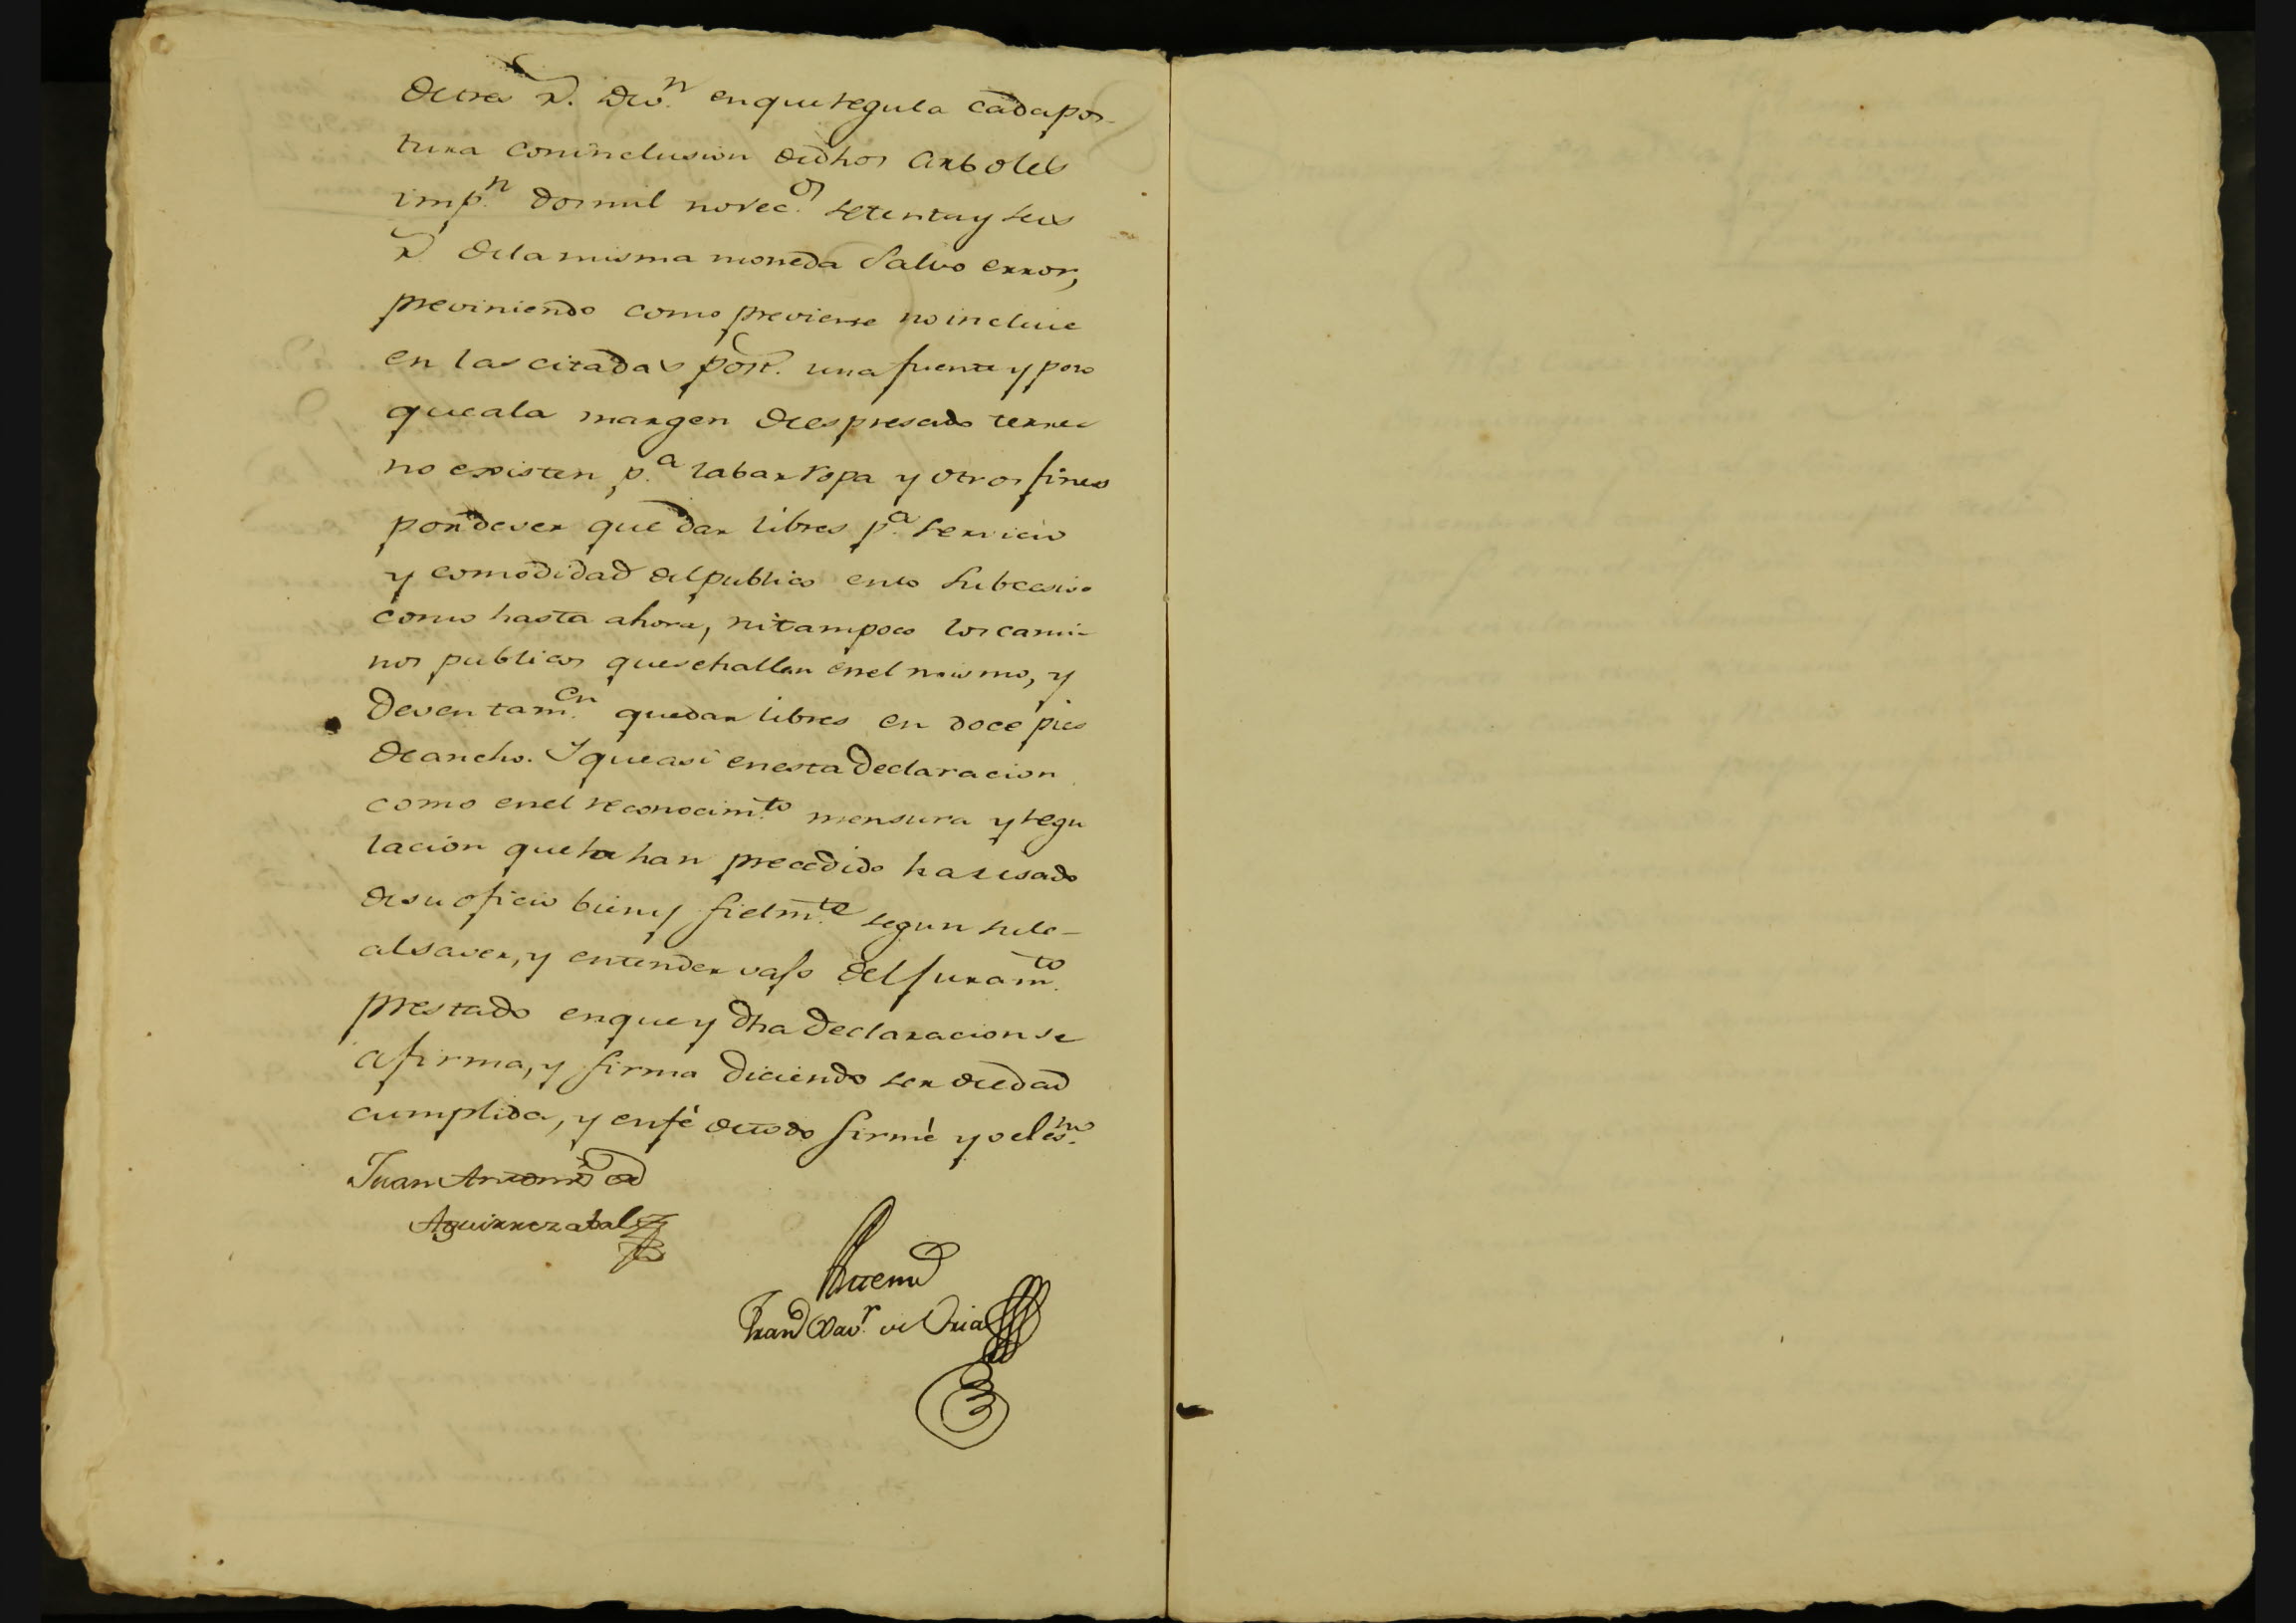 de tres r.s de v.n en que regula cada pos-
tura con inclusion de dhos arboles
imp.n dos mil novec.os setenta y seis
r.s de la misma moneda salvo error,
previniendo como previene no incluie
en las citadas post.s una fuente y poso
que ala margen de espresado terre-
no existen p.a labar ropa y otros fines
por dever quedar libres p.a servicio
y comodidad del publico en lo subcesivo
como hasta ahora, ni tampoco los cami-
nos publicos que se hallan en el mismo, y
deven tam.en quedar libres en doce pies
de ancho. Y que asi en esta declaracion
como en el reconocim.to mensura y regu
lacion que la han precedido ha usado
de su oficio bien y fielm.te segun su le-
al saver, y entender vajo del juram.to
prestado en que y dha declaracion se
afirma, y firma diciendo ser de edad
cumplida, y en fé de todo firmé yo el es.no
Juan Antonio de
Aguirrezabal
Ante mi
Fran.co Xav.r de Oria